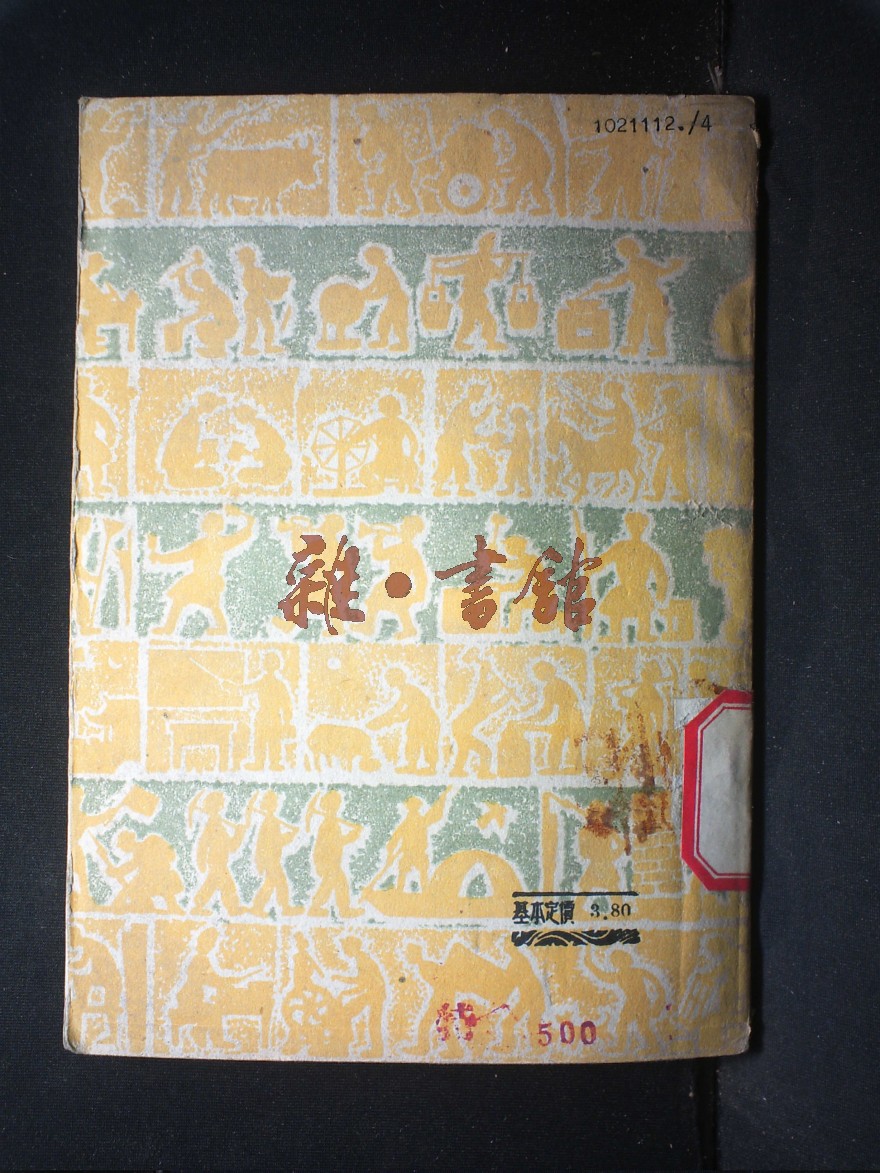 1021112./4
雜·書館
基本定價 3.80
500